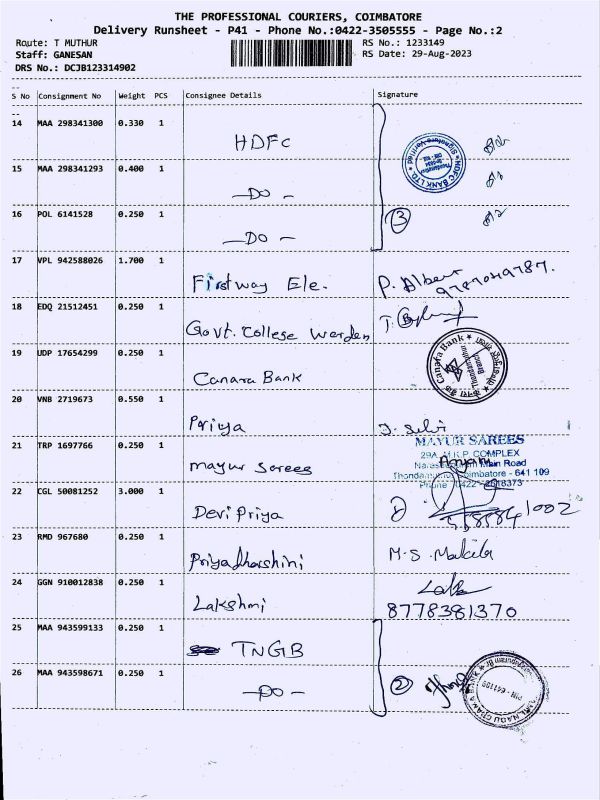 THE PROFESSIONAL COURIERS, COIMBATORE
Delivery Runsheet - P41 - Phone No.:0422-3505555 - Page No.:2
Route: T MUTHUR RS No.: 1233149
Staff: GANESAN RS Date: 29-Aug-2023
DRS No.: DCJB123314902
S No Consignment No Weight PCS Consignee Details Signature
14 MAA 298341300 0.330 1 HDFC
15 MAA 298341293 0.400 1 -DO-
HDFC BANK LTD.
Signature Verified
16 POL 6141528 0.250 1 -DO- 3
17 VPL 942588026 1.700 1 Firstway Ele. P. Albert
18 EDQ 21512451 0.250 1 Govt. College Warden
19 UDP 17654299 0.250 1 Canara Bank
Canara Bank
Branch
20 VNB 2719673 0.550 1 Priya J. Selvi
21 TRP 1697766 0.250 1 mayur Sarees
MAYUR SAREES
29A, M.K.P. COMPLEX
Main Road
Coimbatore - 641 109
Phone
22 CGL 50081252 3.000 1 Devi Priya
23 RMD 967680 0.250 1 Priyadharshini M.S.
24 GGN 910012838 0.250 1 Lakshmi
8778381370
25 MAA 943599133 0.250 1 TNGB
26 MAA 943598671 0.250 1 -DO- 2